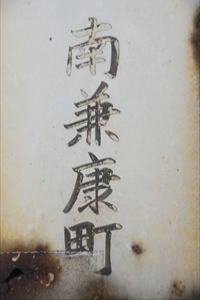 南兼康町